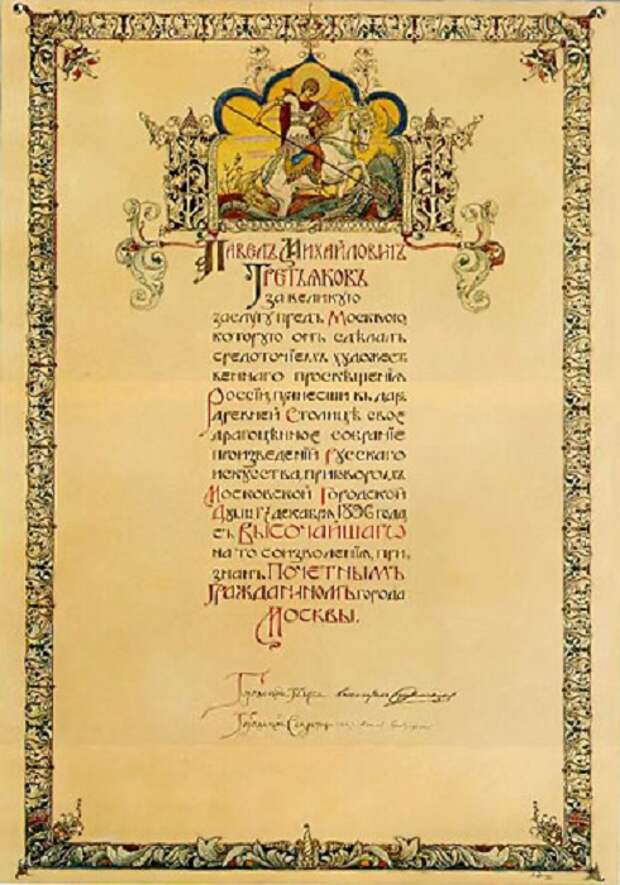 Павелъ Михайловичъ
Третьяковъ
за великую
заслугу предъ Москвою,
которую онъ сдѣлалъ
средоточiемъ художест
веннаго просвѣщенiя
Россiи, принесши въ даръ
древней Столицѣ свое
драгоцѣнное собранiе
произведенiй Русскаго
искусства, приговоромъ
Московской Городской
Думы 17 декабря 1896 года
съ Высочайшаго
на то соизволенiя, при
знанъ Почетнымъ
гражданиномъ города
Москвы.
Городской Голова
Городской Секретарь